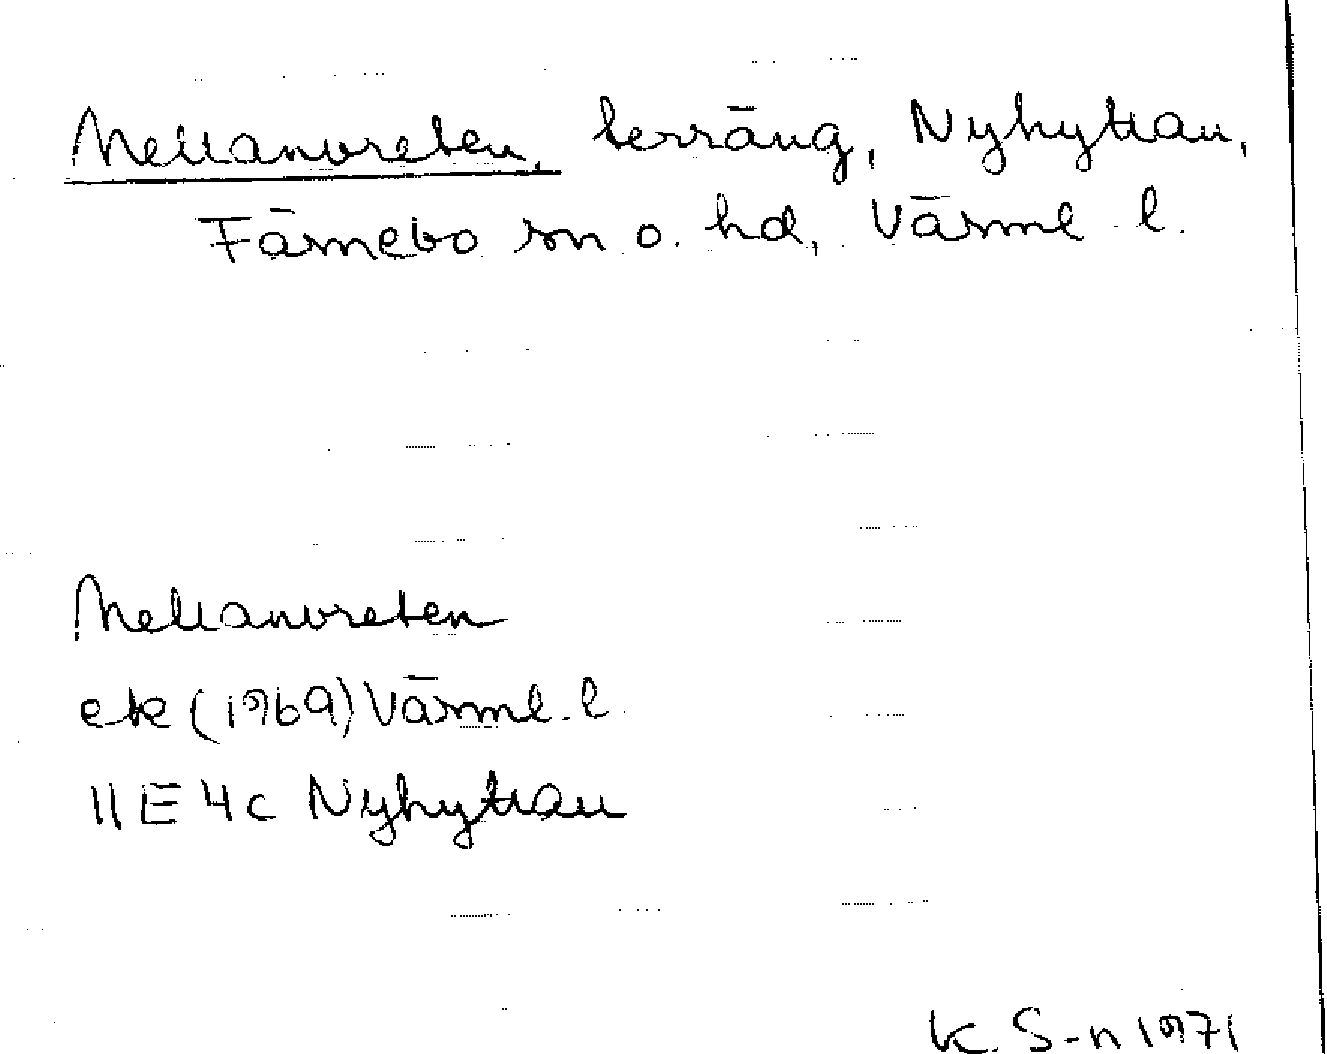 Mellanvreten, terräng, Nyhyttan,
Färnebo sn o. hd, Värml l.
Mellanvreten
ek (1969) Värml. l.
11E 4c Nyhyttan
K. S-n 1971